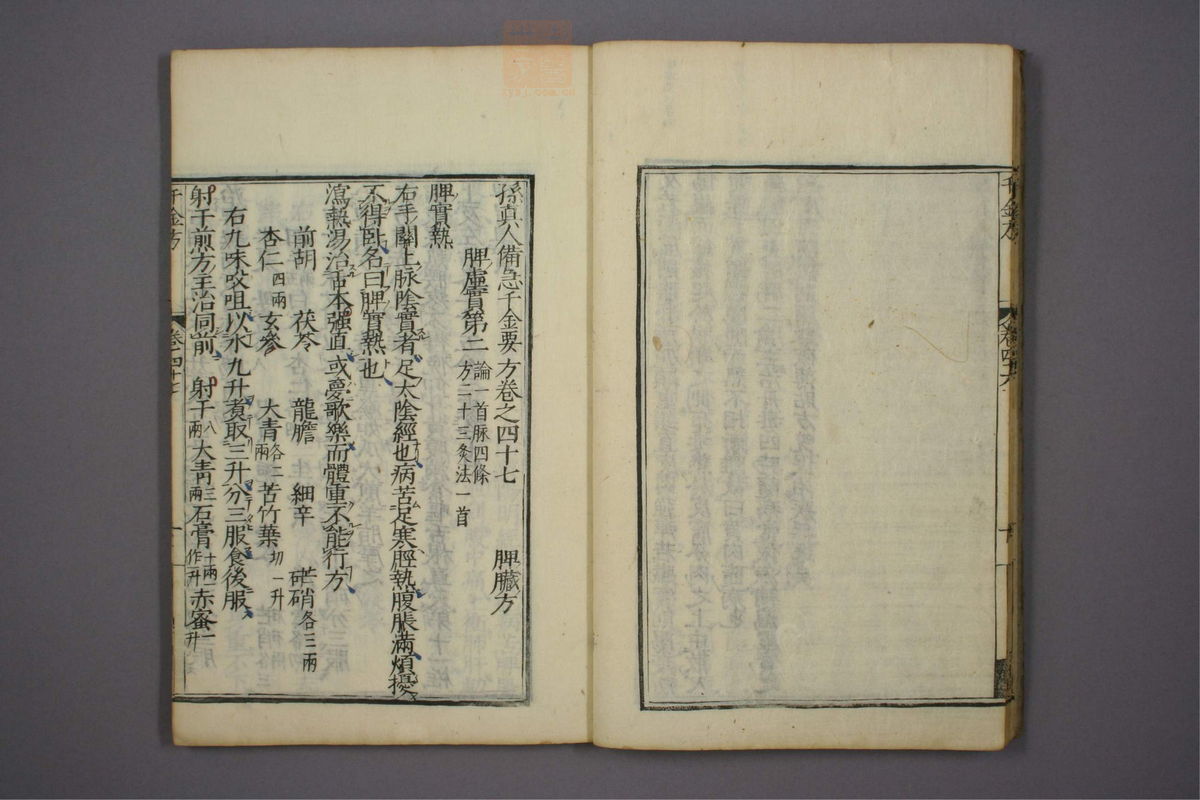 千金方
孫真人備急千金要方卷之四十七 脾臟方
脾虛實第二 論一首脉四條 方二十三灸法一首
脾實熱
右手關上脉陰實者足太陰經也病苦足寒脛熱腹脹滿煩擾
不得臥名曰脾實熱也
瀉熱湯治舌本強直或夢歌樂而體重不能行方
前胡 茯苓 龍膽 細辛 芒硝各三兩
杏仁四兩 玄參 大青各二兩 苦竹葉切一升
右九味㕮咀以水九升煮取三升分三服食後服
射干煎方主治同前 射干八兩 大青三兩 石膏十兩一作升 赤蜜一升
千金方 卷四十七